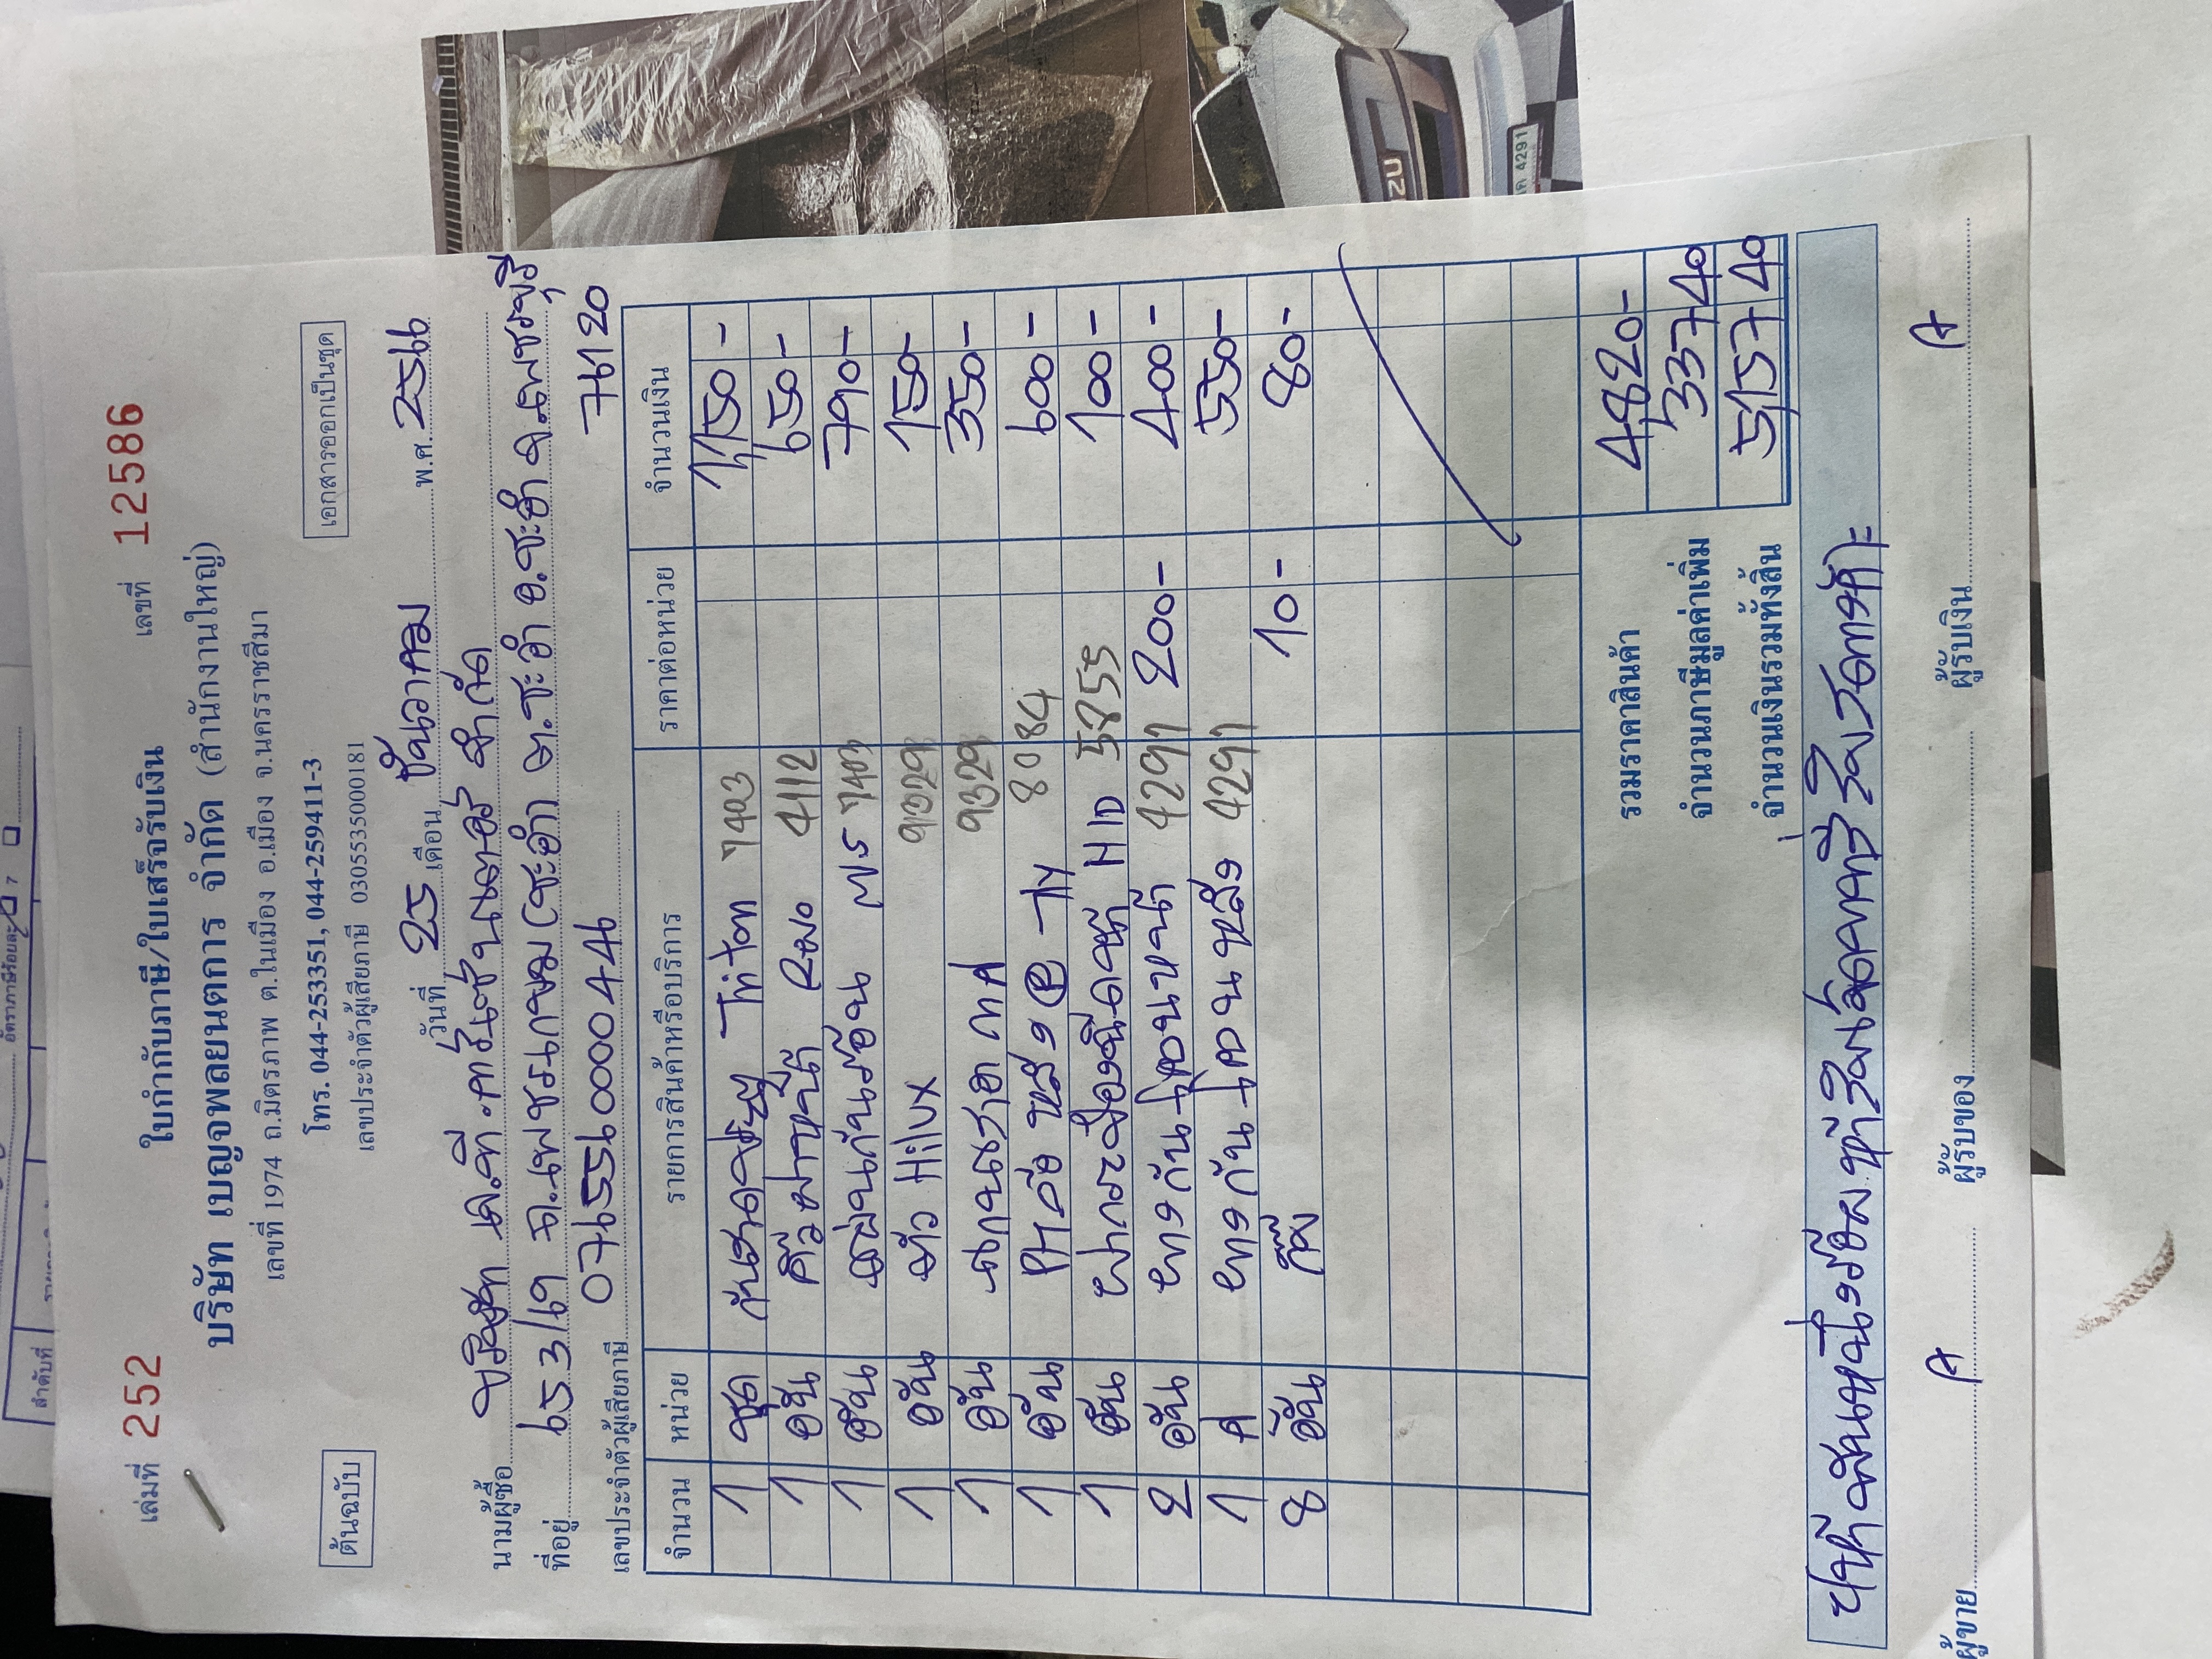 เล่มที่ 252 เลขที่ 12586
ใบกำกับภาษี/ใบเสร็จรับเงิน
บริษัท เบญจพลยนตการ จำกัด (สำนักงานใหญ่)
เลขที่ 1974 ถ.มิตรภาพ ต.ในเมือง อ.เมือง จ.นครราชสีมา
โทร. 044-253351, 044-259411-3
เลขประจำตัวผู้เสียภาษี 0305535000181
ต้นฉบับ
เอกสารออกเป็นชุด
วันที่ 25 เดือน ธันวาคม พ.ศ. 2566
นามผู้ซื้อ บริษัท เค.ที.คาร์เซ็นเตอร์ จำกัด
ที่อยู่ 653/67 ถ.เพชรเกษม (ชะอำ) ต.ชะอำ อ.ชะอำ จ.เพชรบุรี
เลขประจำตัวผู้เสียภาษี 0765560000446 76120
จำนวน หน่วย รายการสินค้าหรือบริการ ราคาต่อหน่วย จำนวนเงิน
1 ชุด Triton 7403 1,150-
1 อัน คิ้วฝาหน้า 4112 650-
1 อัน 7403 790-
1 อัน Hilux 9329 150-
1 อัน 9329 350-
1 อัน 8084 600-
1 อัน HID 5855 100-
2 อัน หางกันโคลนหน้า 4291 200- 400-
1 คู่ หางกันโคลนหลัง 4291 550-
8 อัน กิ๊ป 10- 80-
รวมราคาสินค้า 4,820-
จำนวนภาษีมูลค่าเพิ่ม 337 40
จำนวนเงินรวมทั้งสิ้น 5,157 40
ห้าพันหนึ่งร้อยห้าสิบเจ็ดบาทสี่สิบสตางค์
ผู้ขาย ผู้รับของ ผู้รับเงิน
ลำดับที่
4291